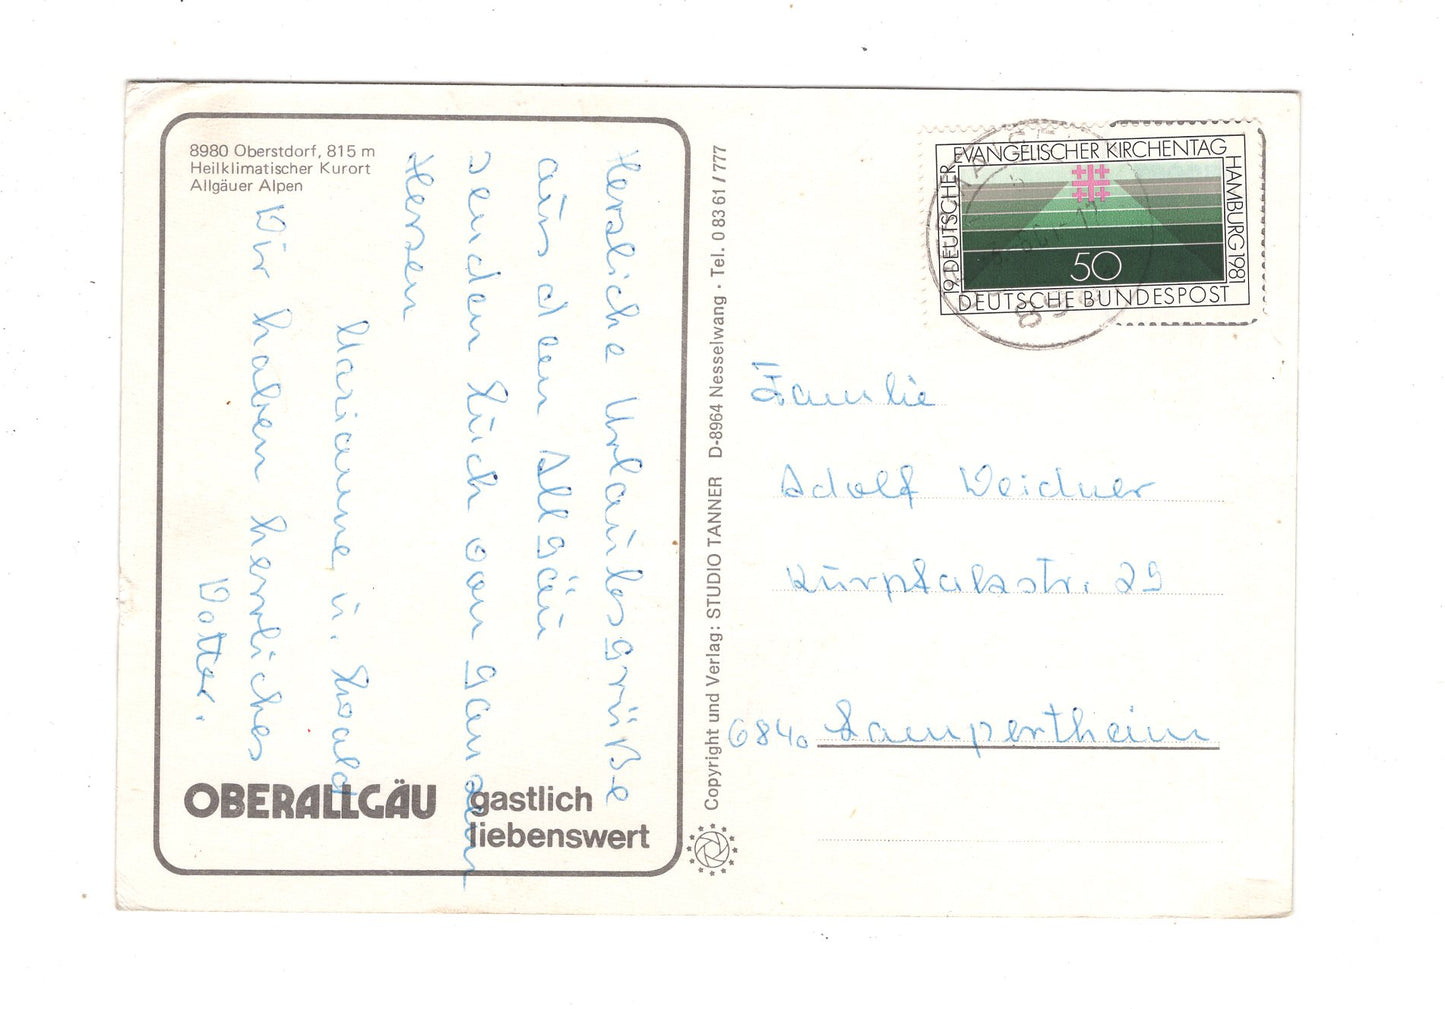 8980 Oberstdorf, 815 m
Heilklimatischer Kurort
Allgäuer Alpen
Herzliche Urlaubsgrüße
aus dem Allgäu
senden Euch von ganzem
Herzen
Marianne u. Ewald
Wir haben herrliches
Wetter.
OBERALLGÄU gastlich
liebenswert
Copyright und Verlag: STUDIO TANNER D-8964 Nesselwang · Tel. 0 83 61 / 777
19. DEUTSCHER
EVANGELISCHER KIRCHENTAG
HAMBURG 1981
50
DEUTSCHE BUNDESPOST
Familie
Adolf Weidner
Kurpfalzstr. 29
6840 Lampertheim